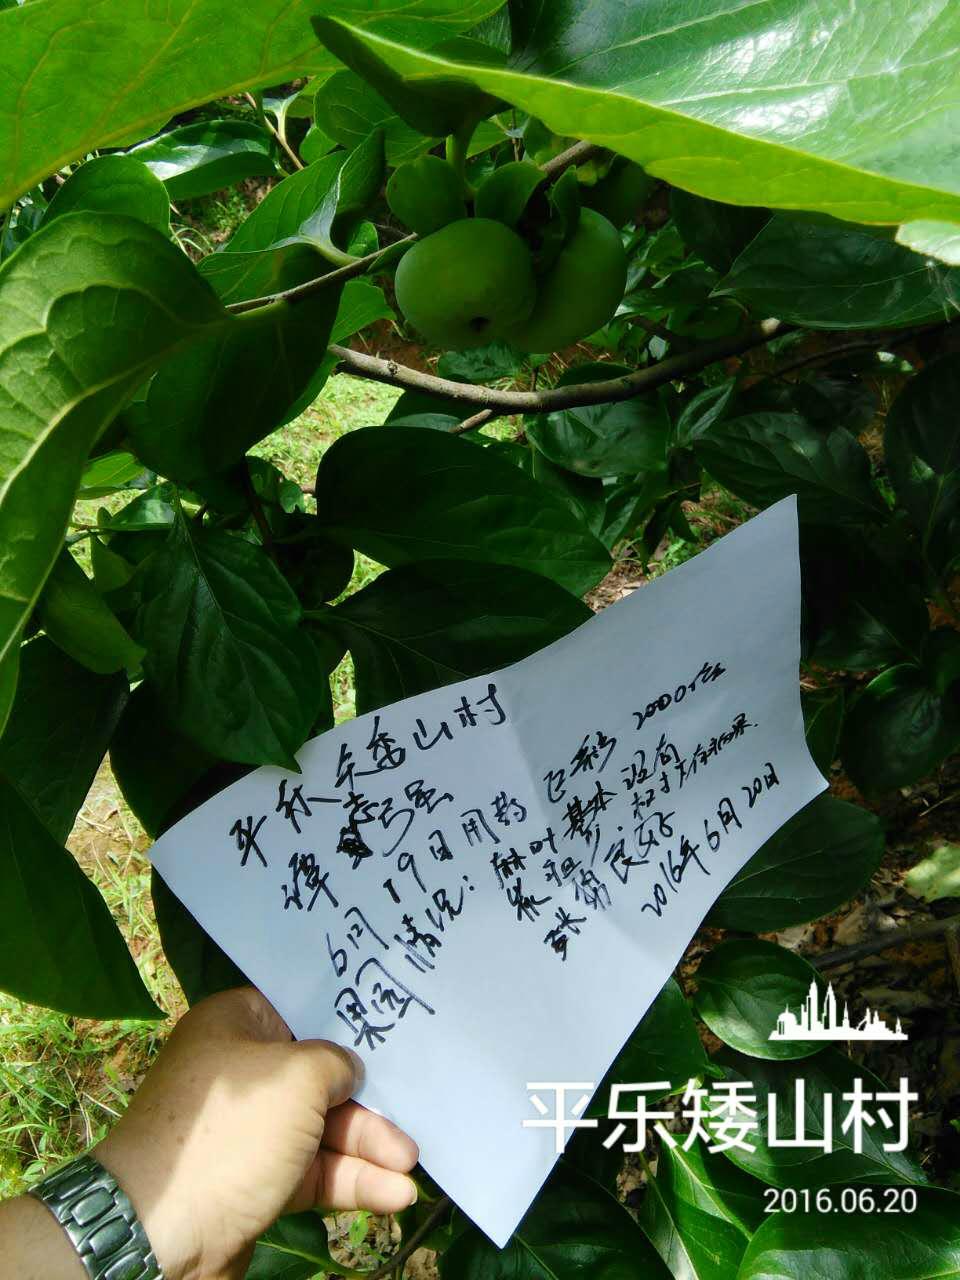 平乐矮山村
谭志强
6月19日用药 已 2000倍
果园情况:麻叶基本没有
很少
长势良好
2016年6月20日
平乐矮山村
2016.06.20